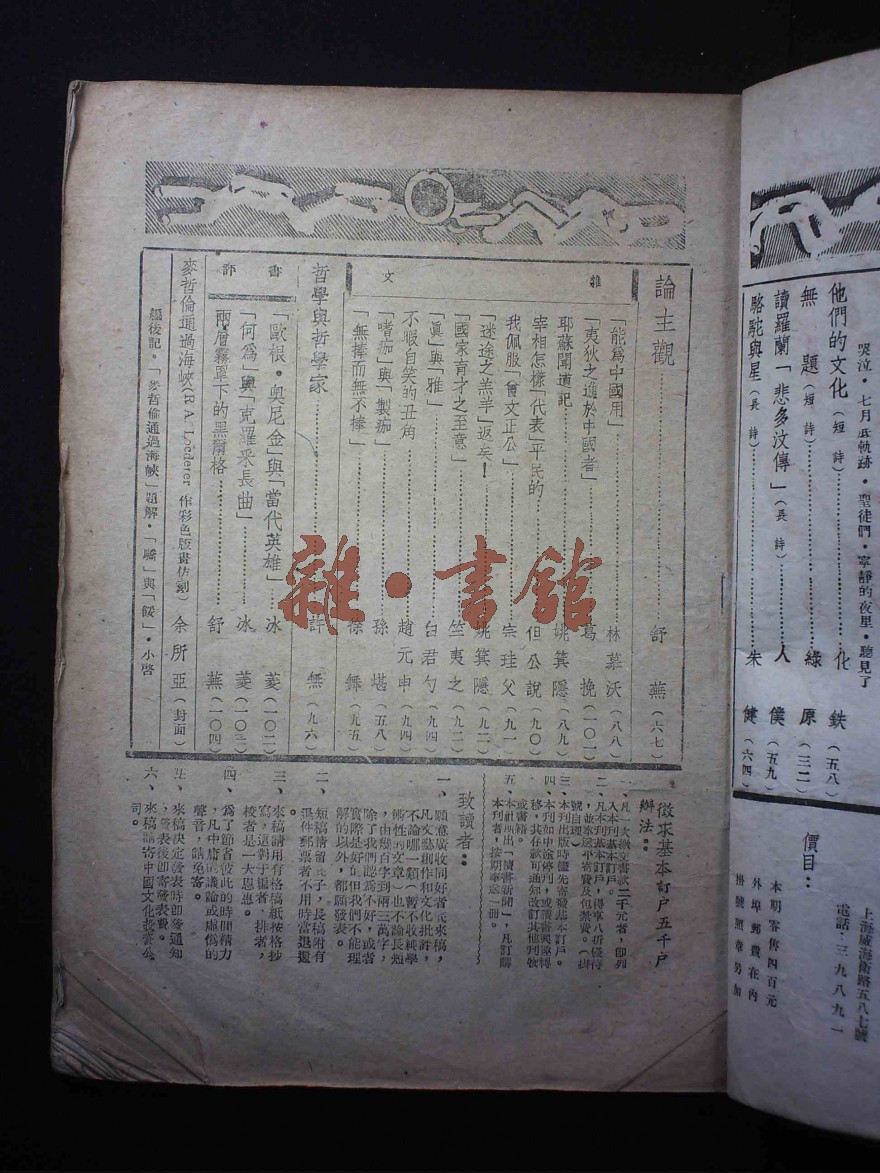 哭泣・七月底軌跡・聖徒們・寧靜的夜里・聽見了
他們的文化(短詩)……化鉄(五八)
無題(短詩)……綠原(三二)
讀羅蘭「悲多汶傳」(長詩)……人僕(五九)
駱駝與星(長詩)……朱健(六四)
上海威海衛路五八七號
電話:三九八九一
價目:
本期零售四百元
外埠郵費在內
掛號照章另加
論主觀……舒蕪(六七)
雜文
「能爲中國用」……林慕沃(八八)
「夷狄之進於中國者」……葛挽(一〇一)
耶蘇聞道記……姚箕隱(八九)
宰相怎樣「代表」平民的……但公說(九〇)
我佩服「曾文正公」……宗珪父(九一)
「迷途之羔羊」返矣!……姚箕隱(九二)
「國家育才之至意」……竺夷之(九二)
「眞」與「雅」……白君勺(九四)
不暇自笑的丑角……趙元申(九四)
「嗜痂」與「製痂」……孫堪(五八)
「無捧而無不捧」……徐舞(九五)
哲學與哲學家……許無(九六)
書評
「歐根・奧尼金」與「當代英雄」……冰菱(一〇二)
「何爲」與「克羅采長曲」……冰菱(一〇三)
兩層霧罩下的黑爾格……舒蕪(一〇四)
麥哲倫通過海峽(B.A. Loederer 作彩色版畫仿刻)余所亞(封面)
編後記・「麥哲倫通過海峽」題解・「驕」與「餒」・小啓
徵求基本訂戶五千戶
辦法:
一、凡一次繳文書款二千元者,即列
入本刊基本訂戶。
二、凡本刊基本訂戶,得享八折優待
,並寄送不寄費及包紮費。(掛
號自理)
三、本刊出版時儘先寄發基本訂戶。
四、本刊如中途停刊,或讀書興趣轉
移,其存款可通知改訂其他刊物
或書籍。
五、本社所出「讀書新聞」,凡訂購
本刊者,按期寄送一冊。
致讀者:
一、願意廣收同好者底來稿,
凡文藝創作和文化批評,
不論哪一類(暫不收純學
術性的文章)也不論長短
,由幾百字到兩三萬字,
除了我們認爲不好,或者
實際是好的但我們不能理
解的以外,都願發表。
二、短稿請留底子,長稿附有
退件郵票者不用時當退還
。
三、來稿請用有格稿紙按格抄
寫,這對于編者、排者,
校者是一大恩惠。
四、爲了節省彼此的時間精力
,凡中庸的議論或虛僞的
聲音,請免寄。
五、來稿決定發表時即發通知
,發表後即寄發表費。
六、來稿請寄中國文化投資公
司。
雜・書館